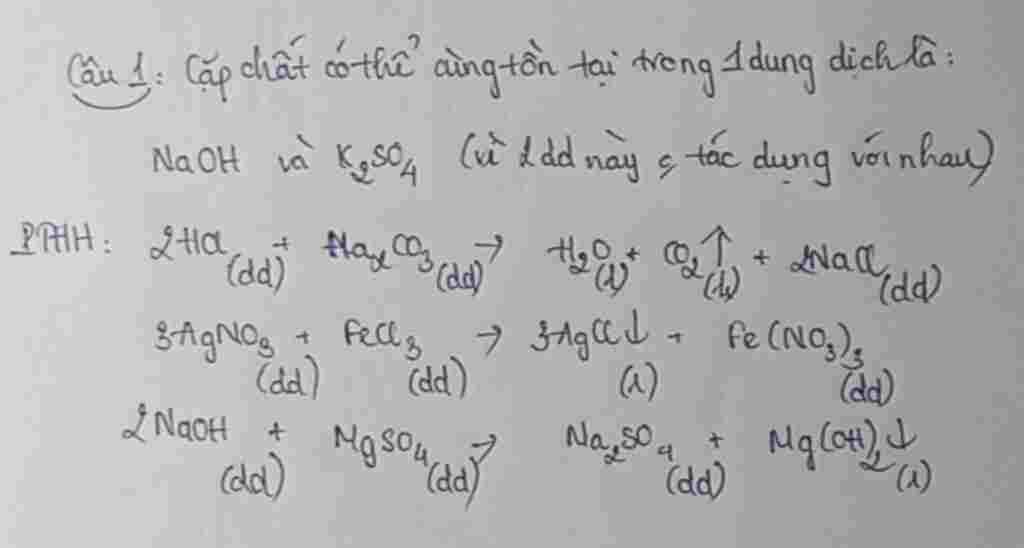 Câu 1: Cặp chất có thể cùng tồn tại trong 1 dung dịch là:
NaOH và K₂SO₄ (vì 2 dd này ko tác dụng với nhau)
PTHH: 2HCl (dd) + Na₂CO₃ (dd) → H₂O (l) + CO₂↑ (k) + 2NaCl (dd)
3AgNO₃ (dd) + FeCl₃ (dd) → 3AgCl↓ (r) + Fe(NO₃)₃ (dd)
2NaOH (dd) + MgSO₄ (dd) → Na₂SO₄ (dd) + Mg(OH)₂↓ (r)